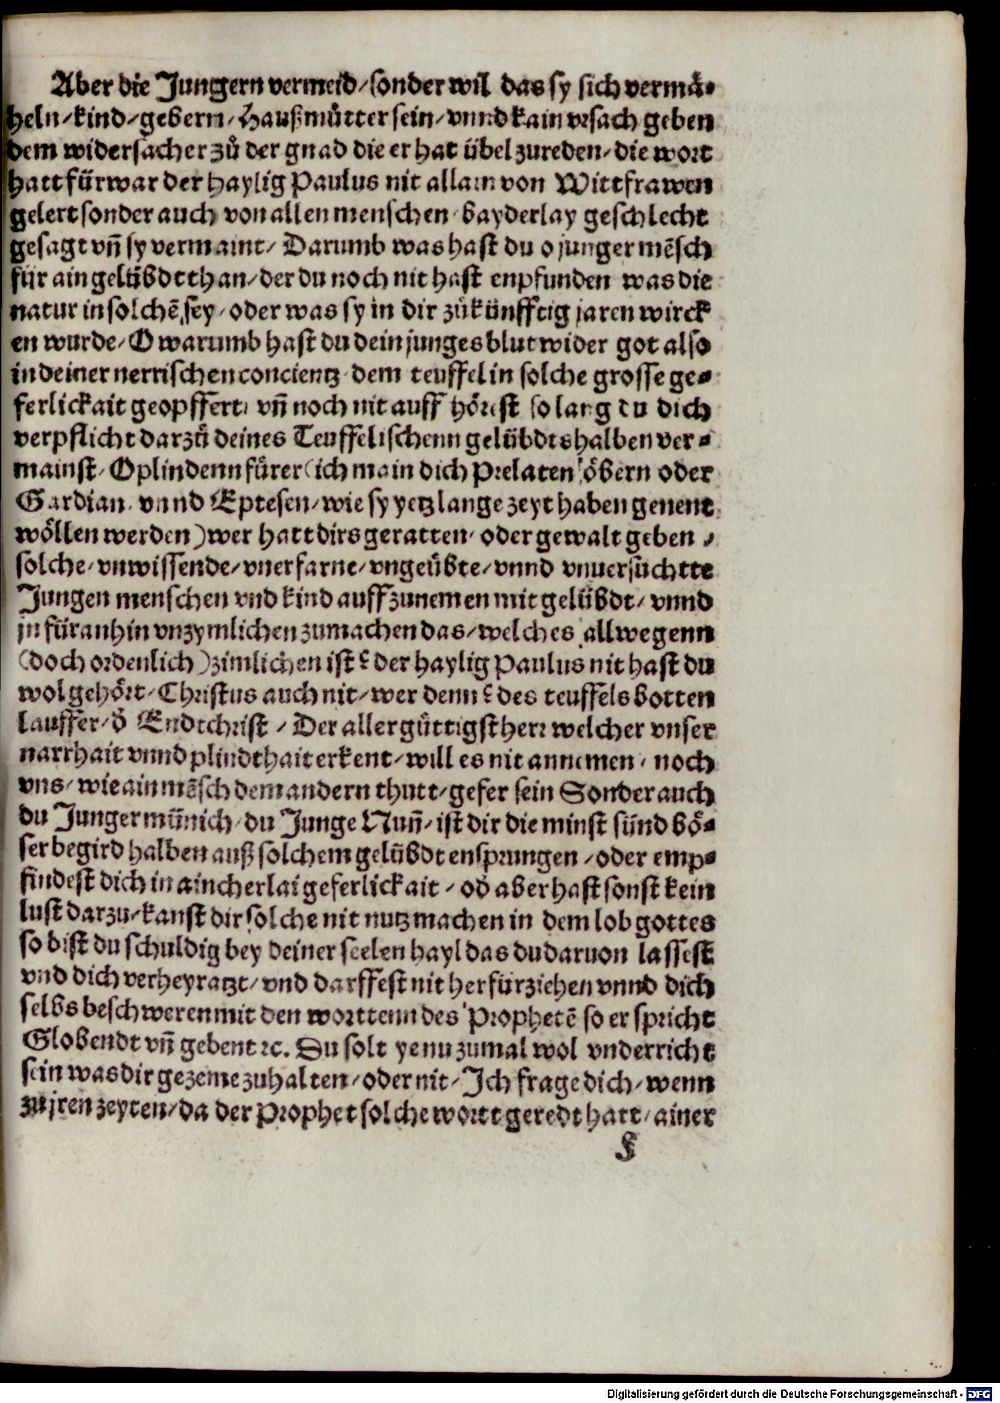 Aber die Jungern vermeid/sonder wil das sy sich vermå⸗
heln/kind/gebern/Haußmůtter sein/vnnd kain vrsach geben
dem widersacher zů der gnad die er hat übel zureden/die wort
hatt fürwar der haylig Paulus nit allain von Wittfrawen
gelert sonder auch von allen menschen bayderlay geschlecht
gesagt vñ sy vermaint/Darumb was hast du o junger mēsch
für ain gelübdt than/der du noch nit hast enpfunden was die
natur in solchē sey/oder was sy in dir zůkünfftig jaren wirck
en wurde/O warumb hast du dein junges blut wider got also
in deiner nerrischen concientz dem teuffel in solche grosse ge⸗
ferlickait geopffert/vñ noch nit auff hörest so lang du dich
verpflicht darzů deines Teuffelischenn gelübdts halben ver⸗
mainst/O plindenn fürer (ich main dich Prelaten öbern oder
Gardian/vnnd Eptesen/wie sy yetz lange zeyt haben genent
wöllen werden) wer hatt dirs geratten/oder gewalt geben/
solche/vnwissende/vnerfarne/vngeübte/vnnd vnuersüchtte
Jungen menschen vnd kind auffzunemen mit gelübdt/vnnd
jn füranhin vnzymlichen zumachen das/welches allwegenn
(doch ordenlich) zimlichen ist? der haylig Paulus nit hast du
wol gehört/Christus auch nit/wer denn? des teuffels botten
lauffer/ď Endtchrist/Der allergüttigst herr welcher vnser
narrhait vnnd plindthait erkent/will es nit annemen/noch
vns/wie ain mēsch dem andern thutt/gefer sein Sonder auch
du Junger münich/du Junge Nuñ/ist dir die minst sünd bö⸗
ser begird halben auß solchem gelübdt ensprungen/oder emp⸗
findest dich in aincherlai geferlickait/ob aber hast sonst kein
lust darzu/kanst dir solche nit nutz machen in dem lob gottes
so bist du schuldig bey deiner seelen hayl das du daruon lassest
vnd dich verheyratzt/vnd darffest nit herfürziehen vnnd dich
selbs beschweren mit den worttenn des Prophetē so er spricht
Globendt vñ gebent ꝛc. Du solt yenu zumal wol vnderricht
sein was dir gezeme zuhalten/oder nit/Ich frage dich/wenn
zu jren zeyten/da der Prophet solche wortt geredt hatt/ainer
Digitalisierung gefördert durch die Deutsche Forschungsgemeinschaft - DFG